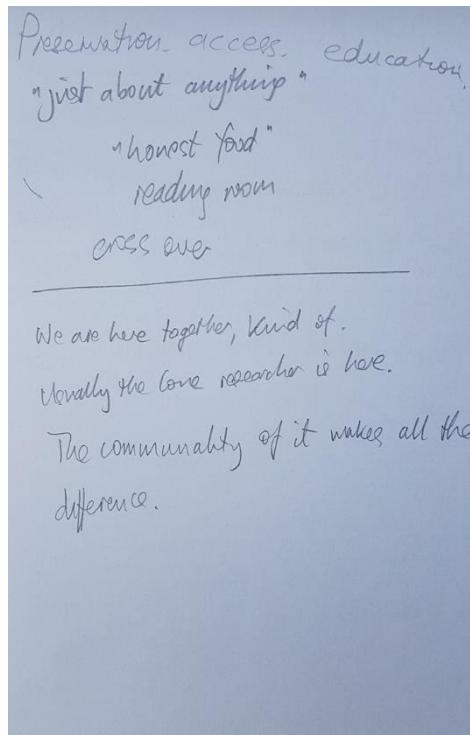 Preservation. access. education.
"just about anything"
"honest food"
reading room
cross over
We are here together, kind of.
Usually the lone researcher is here.
The communality of it makes all the
difference.